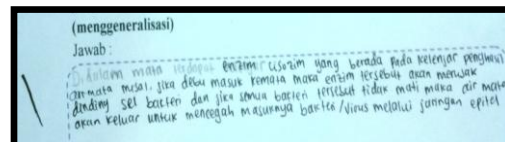 (menggeneralisasi)
Jawab :
Didalam mata terdapat enzim lisozim yang berada pada kelenjar penghasil
air mata misal, jika debu masuk kemata maka enzim tersebut akan merusak
dinding sel bakteri dan jika semua bakteri tersebut tidak mati maka air mata
akan keluar untuk mencegah masuknya bakteri/virus melalui jaringan epitel